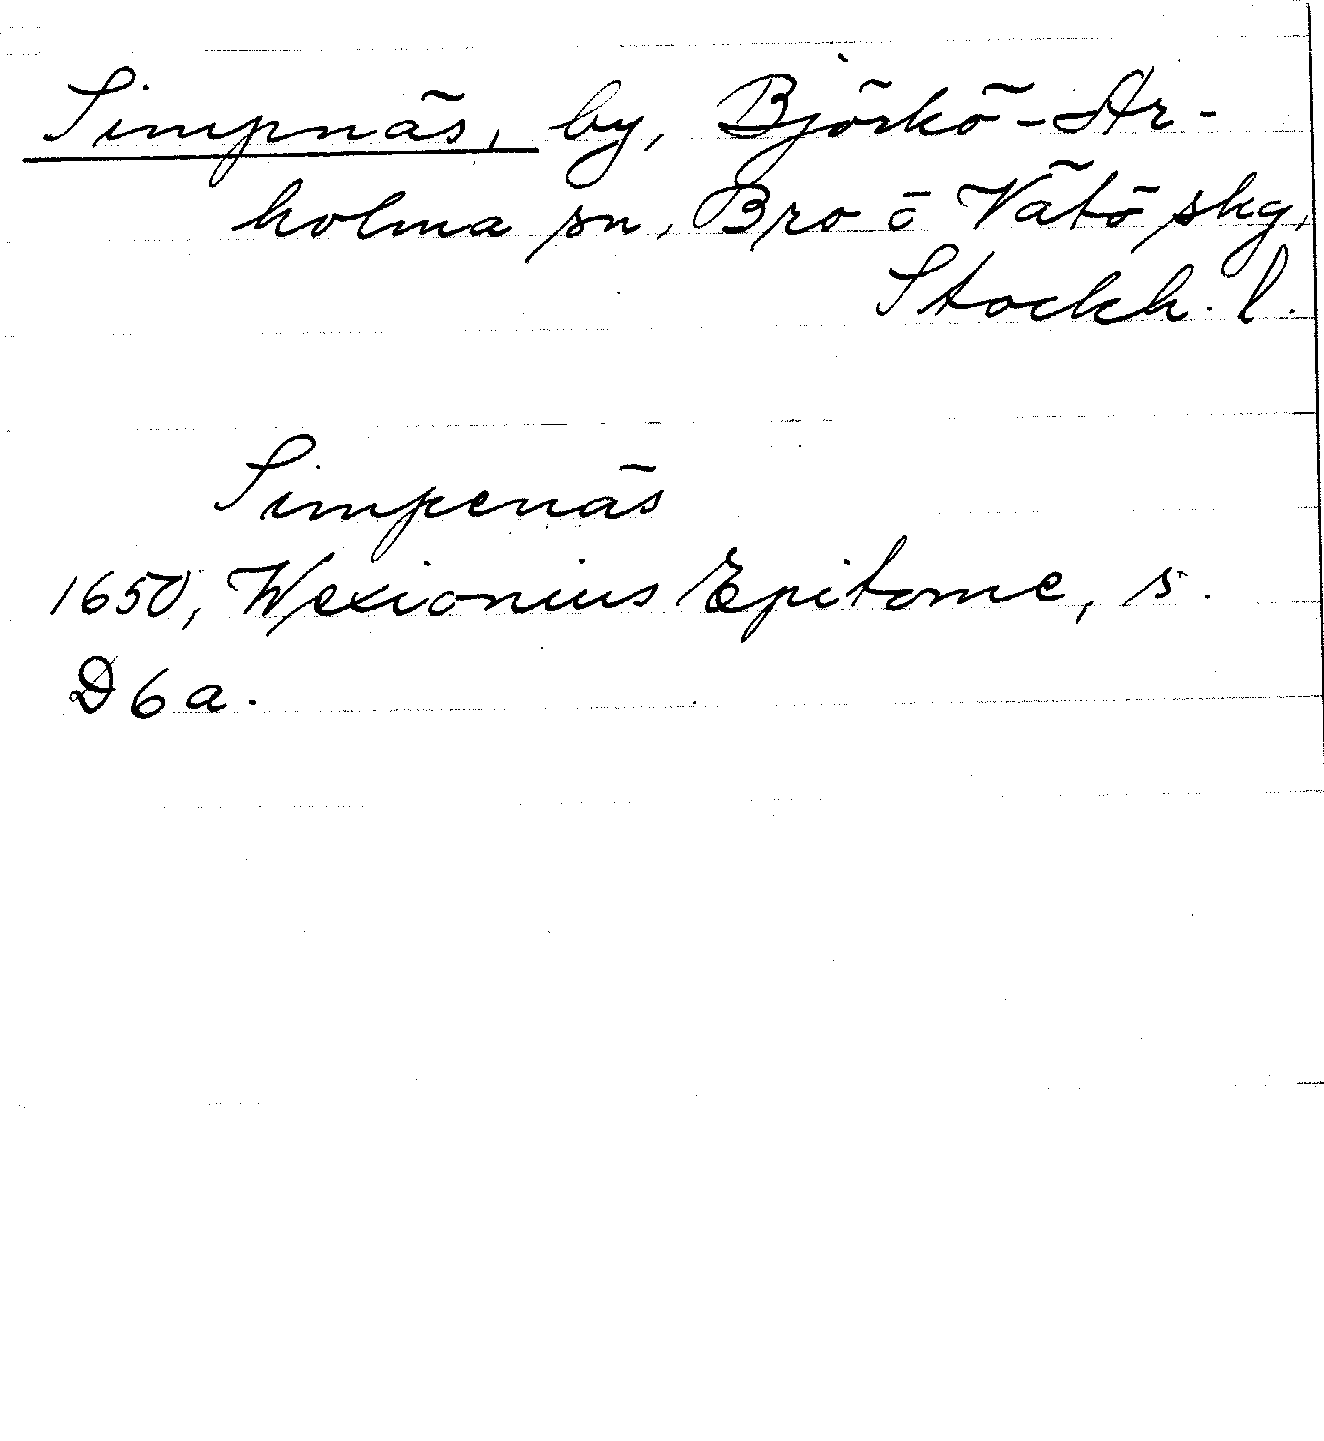 Simpnäs, by, Björkö-Ar-
holma sn, Bro o Vätö skg,
Stockh. l.
Simpenäs
1650, Wexionius Epitome, s.
D6a.